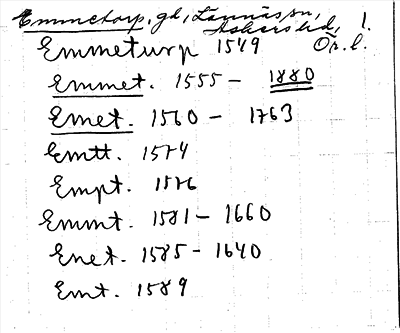 Emmetorp, gd, Lännäs sn, 1.
Askers hd, Ör. l.
Emmeturp 1549
Emmet. 1555 - 1880
Emet. 1560 - 1763
Emtt. 1574
Empt. 1576
Emmt. 1581 - 1660
Enet. 1585 - 1640
Emt. 1589